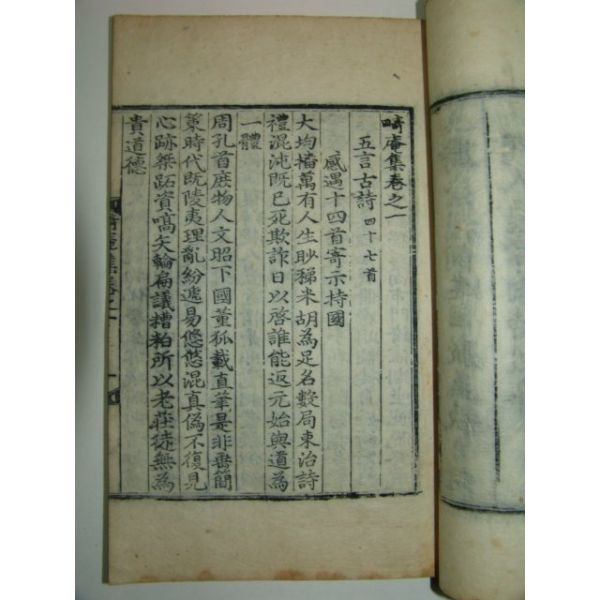 畸庵集卷之一
五言古詩 四十七首
感遇十四首寄示持國
大均播萬有人生眇稊米胡為足名數局束治詩
禮混沌既已死欺詐日以啓誰能返元始與道為
一體
周孔首庶物人文昭下國董狐載直筆是非垂簡
策時代既陵夷理亂紛遞易悠悠混真偽不復見
心跡桀跖資嚆矢輪扁議糟粕所以老莊徒無為
貴道德
畸庵集卷之一